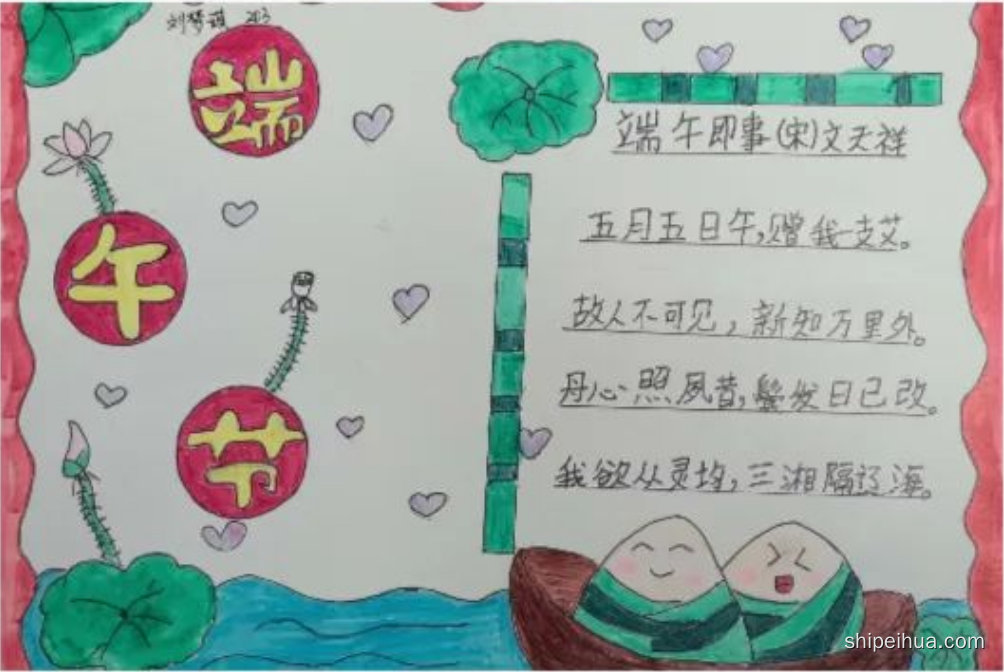 刘梦 203
端
午
节
端午即事(宋)文天祥
五月五日午,赠我一支艾。
故人不可见,新知万里外。
丹心照夙昔,鬓发日已改。
我欲从灵均,三湘隔辽海。
shipeihua.com